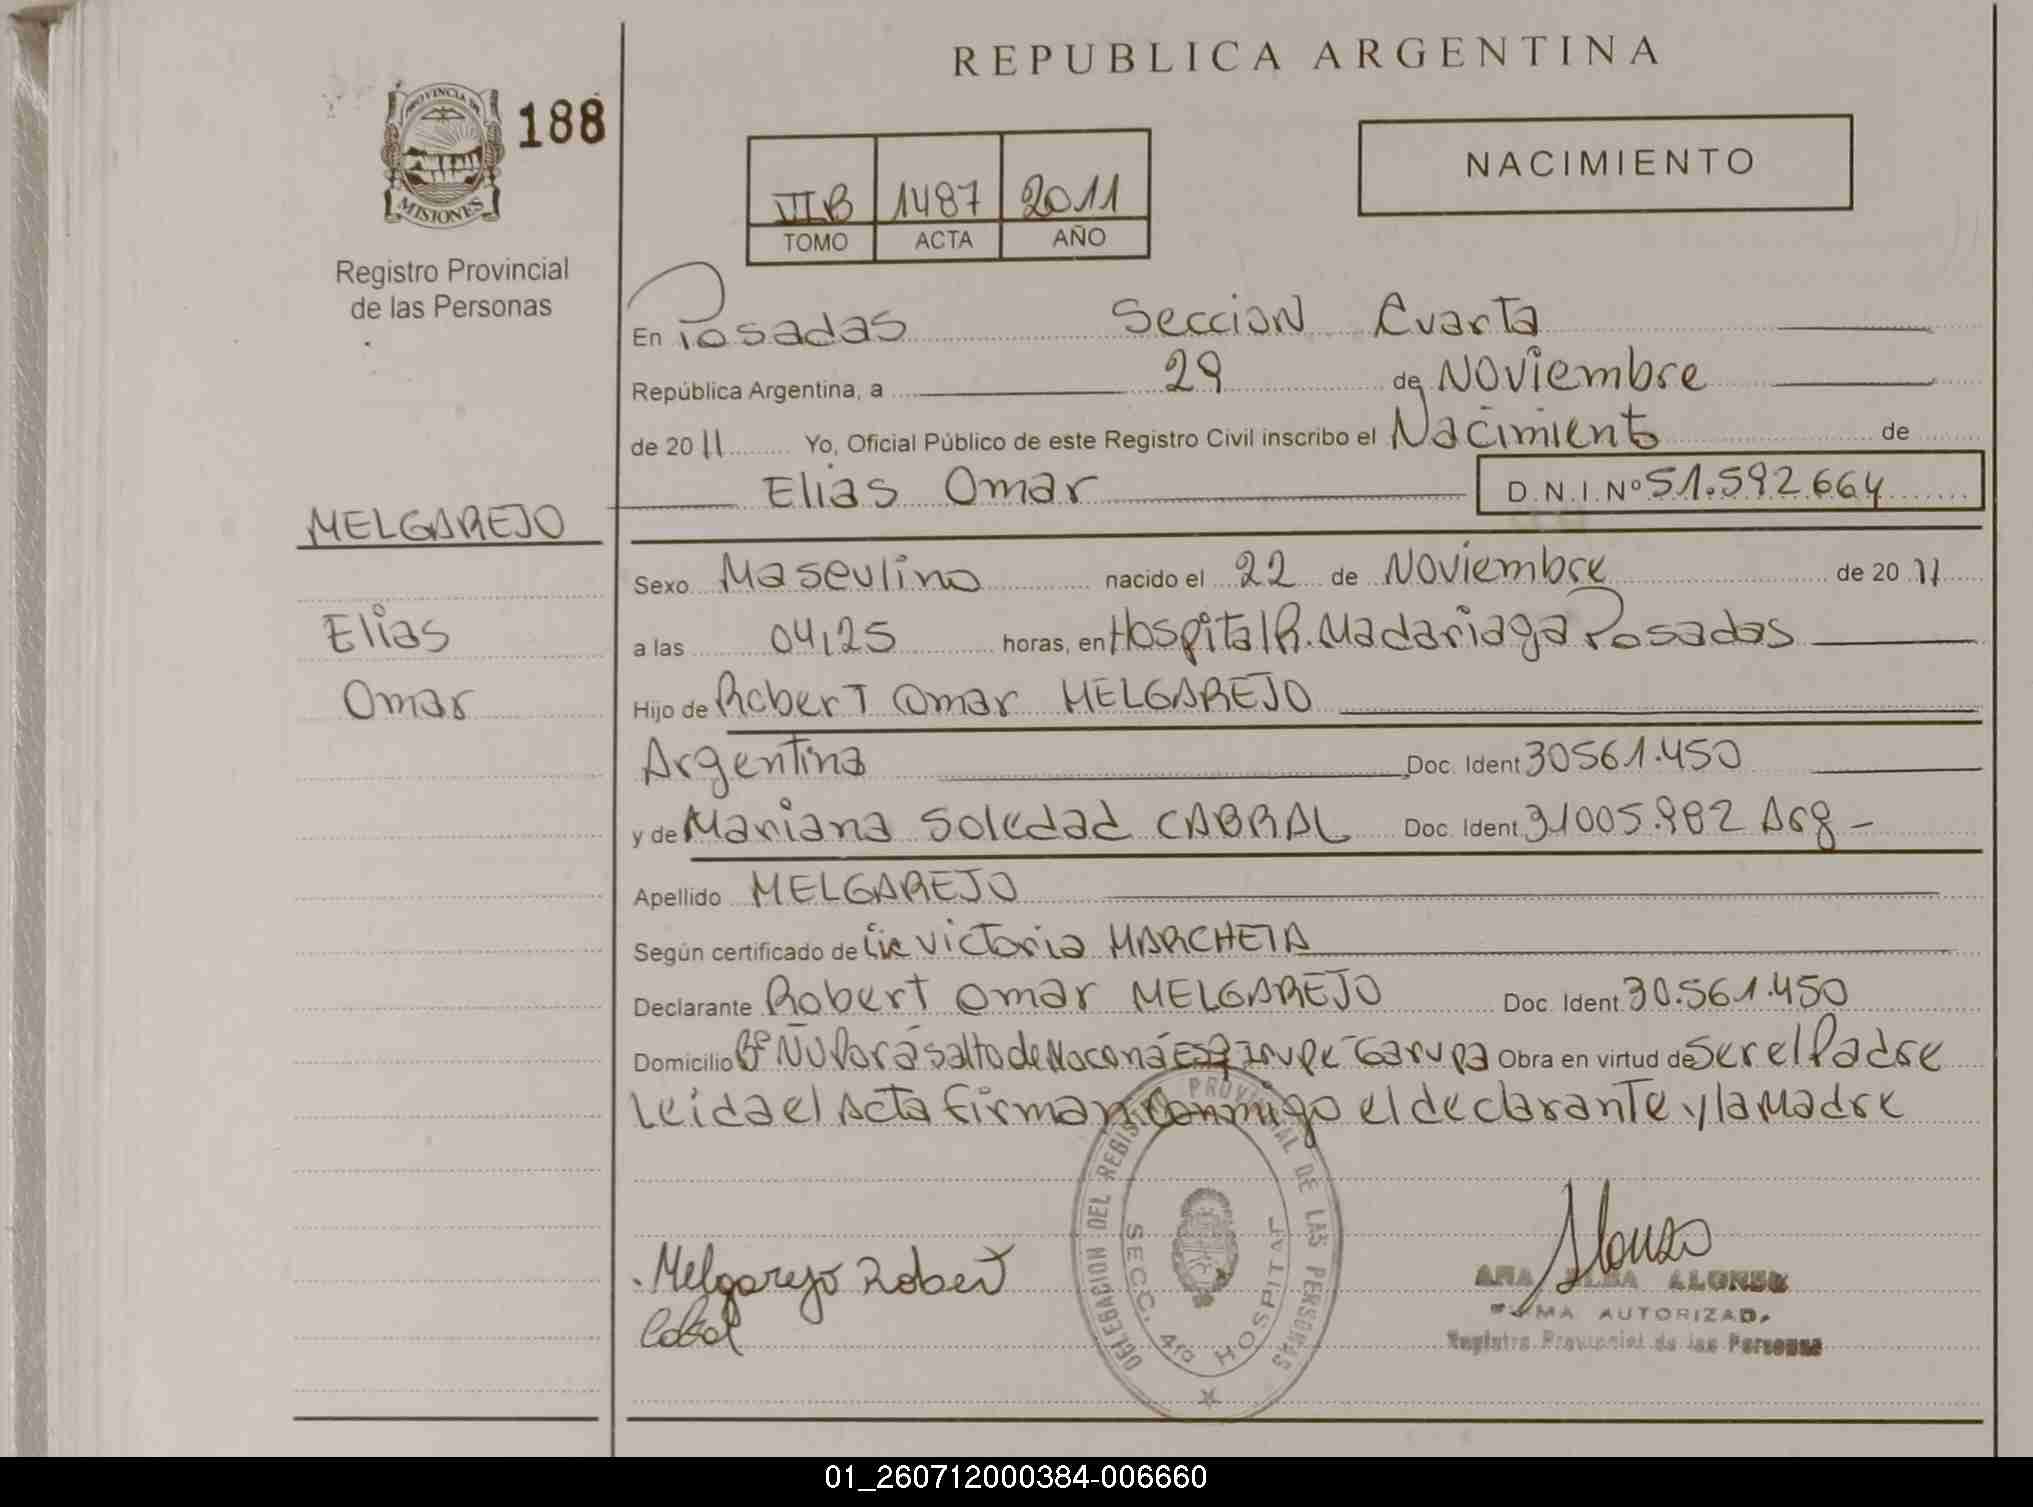 REPUBLICA ARGENTINA
PROVINCIA DE
MISIONES
188
Registro Provincial
de las Personas
VII B 1487 2011
TOMO ACTA AÑO
NACIMIENTO
En Posadas Seccion Cuarta
República Argentina, a 29 de Noviembre
de 2011 Yo, Oficial Público de este Registro Civil inscribo el Nacimiento de
Elias Omar D.N.I. Nº 51.592.664
MELGAREJO
Elias
Omar
Sexo Masculino nacido el 22 de Noviembre de 2011
a las 04,25 horas, en Hospital R. Madariaga Posadas
Hijo de Robert Omar MELGAREJO
Argentina Doc. Ident 30561.450
y de Mariana Soledad CABRAL Doc. Ident 31005.982 Arg -
Apellido MELGAREJO
Según certificado de Lic Victoria MARCHETA
Declarante Robert Omar MELGAREJO Doc. Ident 30.561.450
Domicilio Bº Ñu Porá Salto de Moconá Esq Irupe - Garupa Obra en virtud de Ser el Padre
Leida el Acta firman Conmigo el declarante y la Madre
DELEGACION DEL REGISTRO PROVINCIAL DE LAS PERSONAS
SECC. 4ta HOSPITAL
Melgarejo Robert
Cabral
Alonzo
ANA ELBA ALONSO
FIRMA AUTORIZADA
Registro Provincial de las Personas
01_260712000384-006660